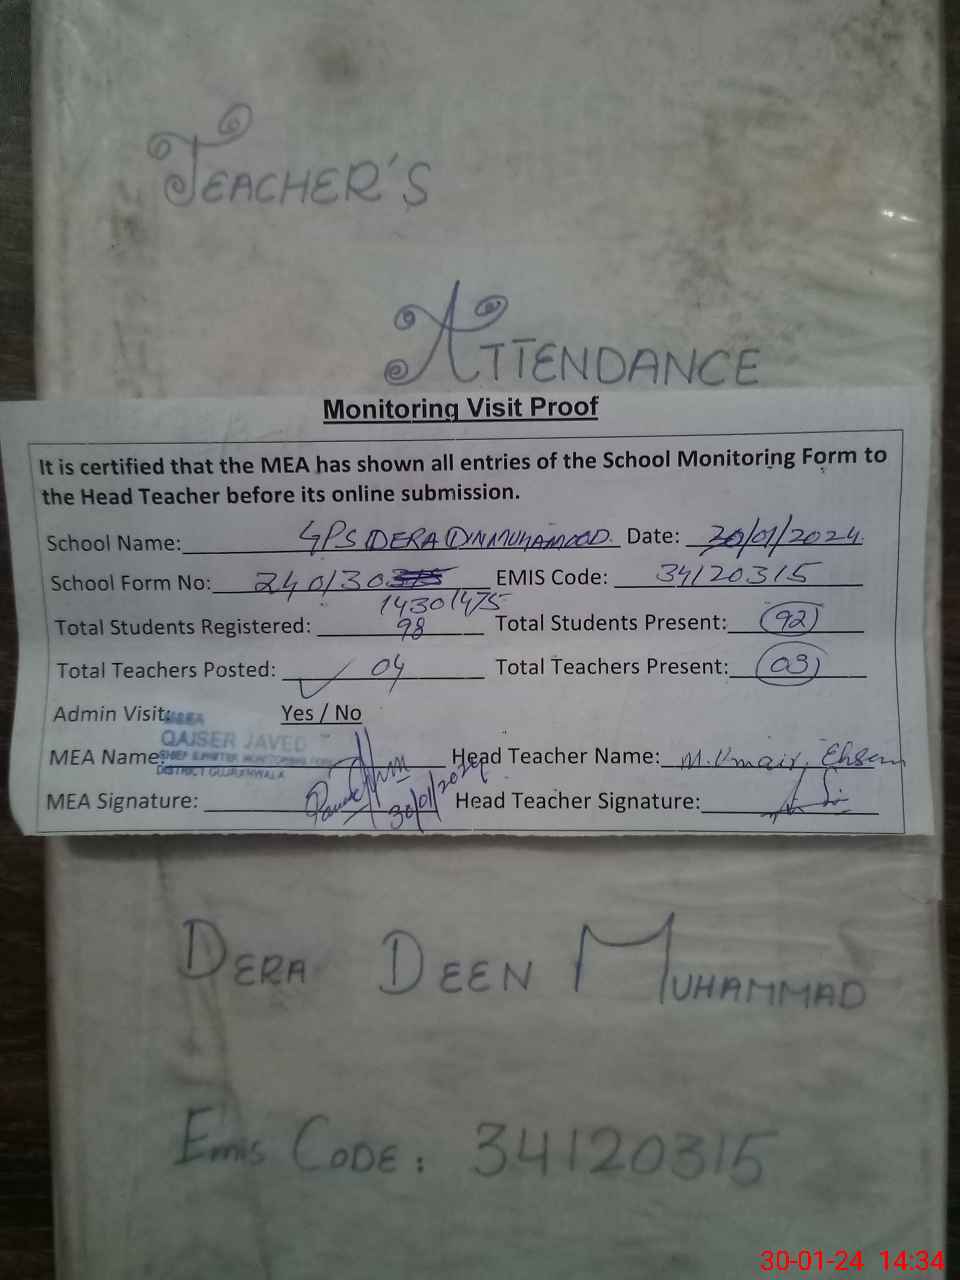 TEACHER'S
ATTENDANCE
Monitoring Visit Proof
It is certified that the MEA has shown all entries of the School Monitoring Form to
the Head Teacher before its online submission.
School Name: GPS DERA DIN MUHAMOOD. Date: 30/01/2024
School Form No: 240130 EMIS Code: 34120315
14301475
Total Students Registered: 98 Total Students Present: 92
Total Teachers Posted: 04 Total Teachers Present: 03
Admin Visit: Yes / No
MEA
QAISER JAVED
MEA Name: Head Teacher Name: M. Umair Ehsan
DISTRICT GUJRANWALA
MEA Signature: 30/01/2024 Head Teacher Signature:
DERA DEEN MUHAMMAD
Emis CODE: 34120315
30-01-24 14:34